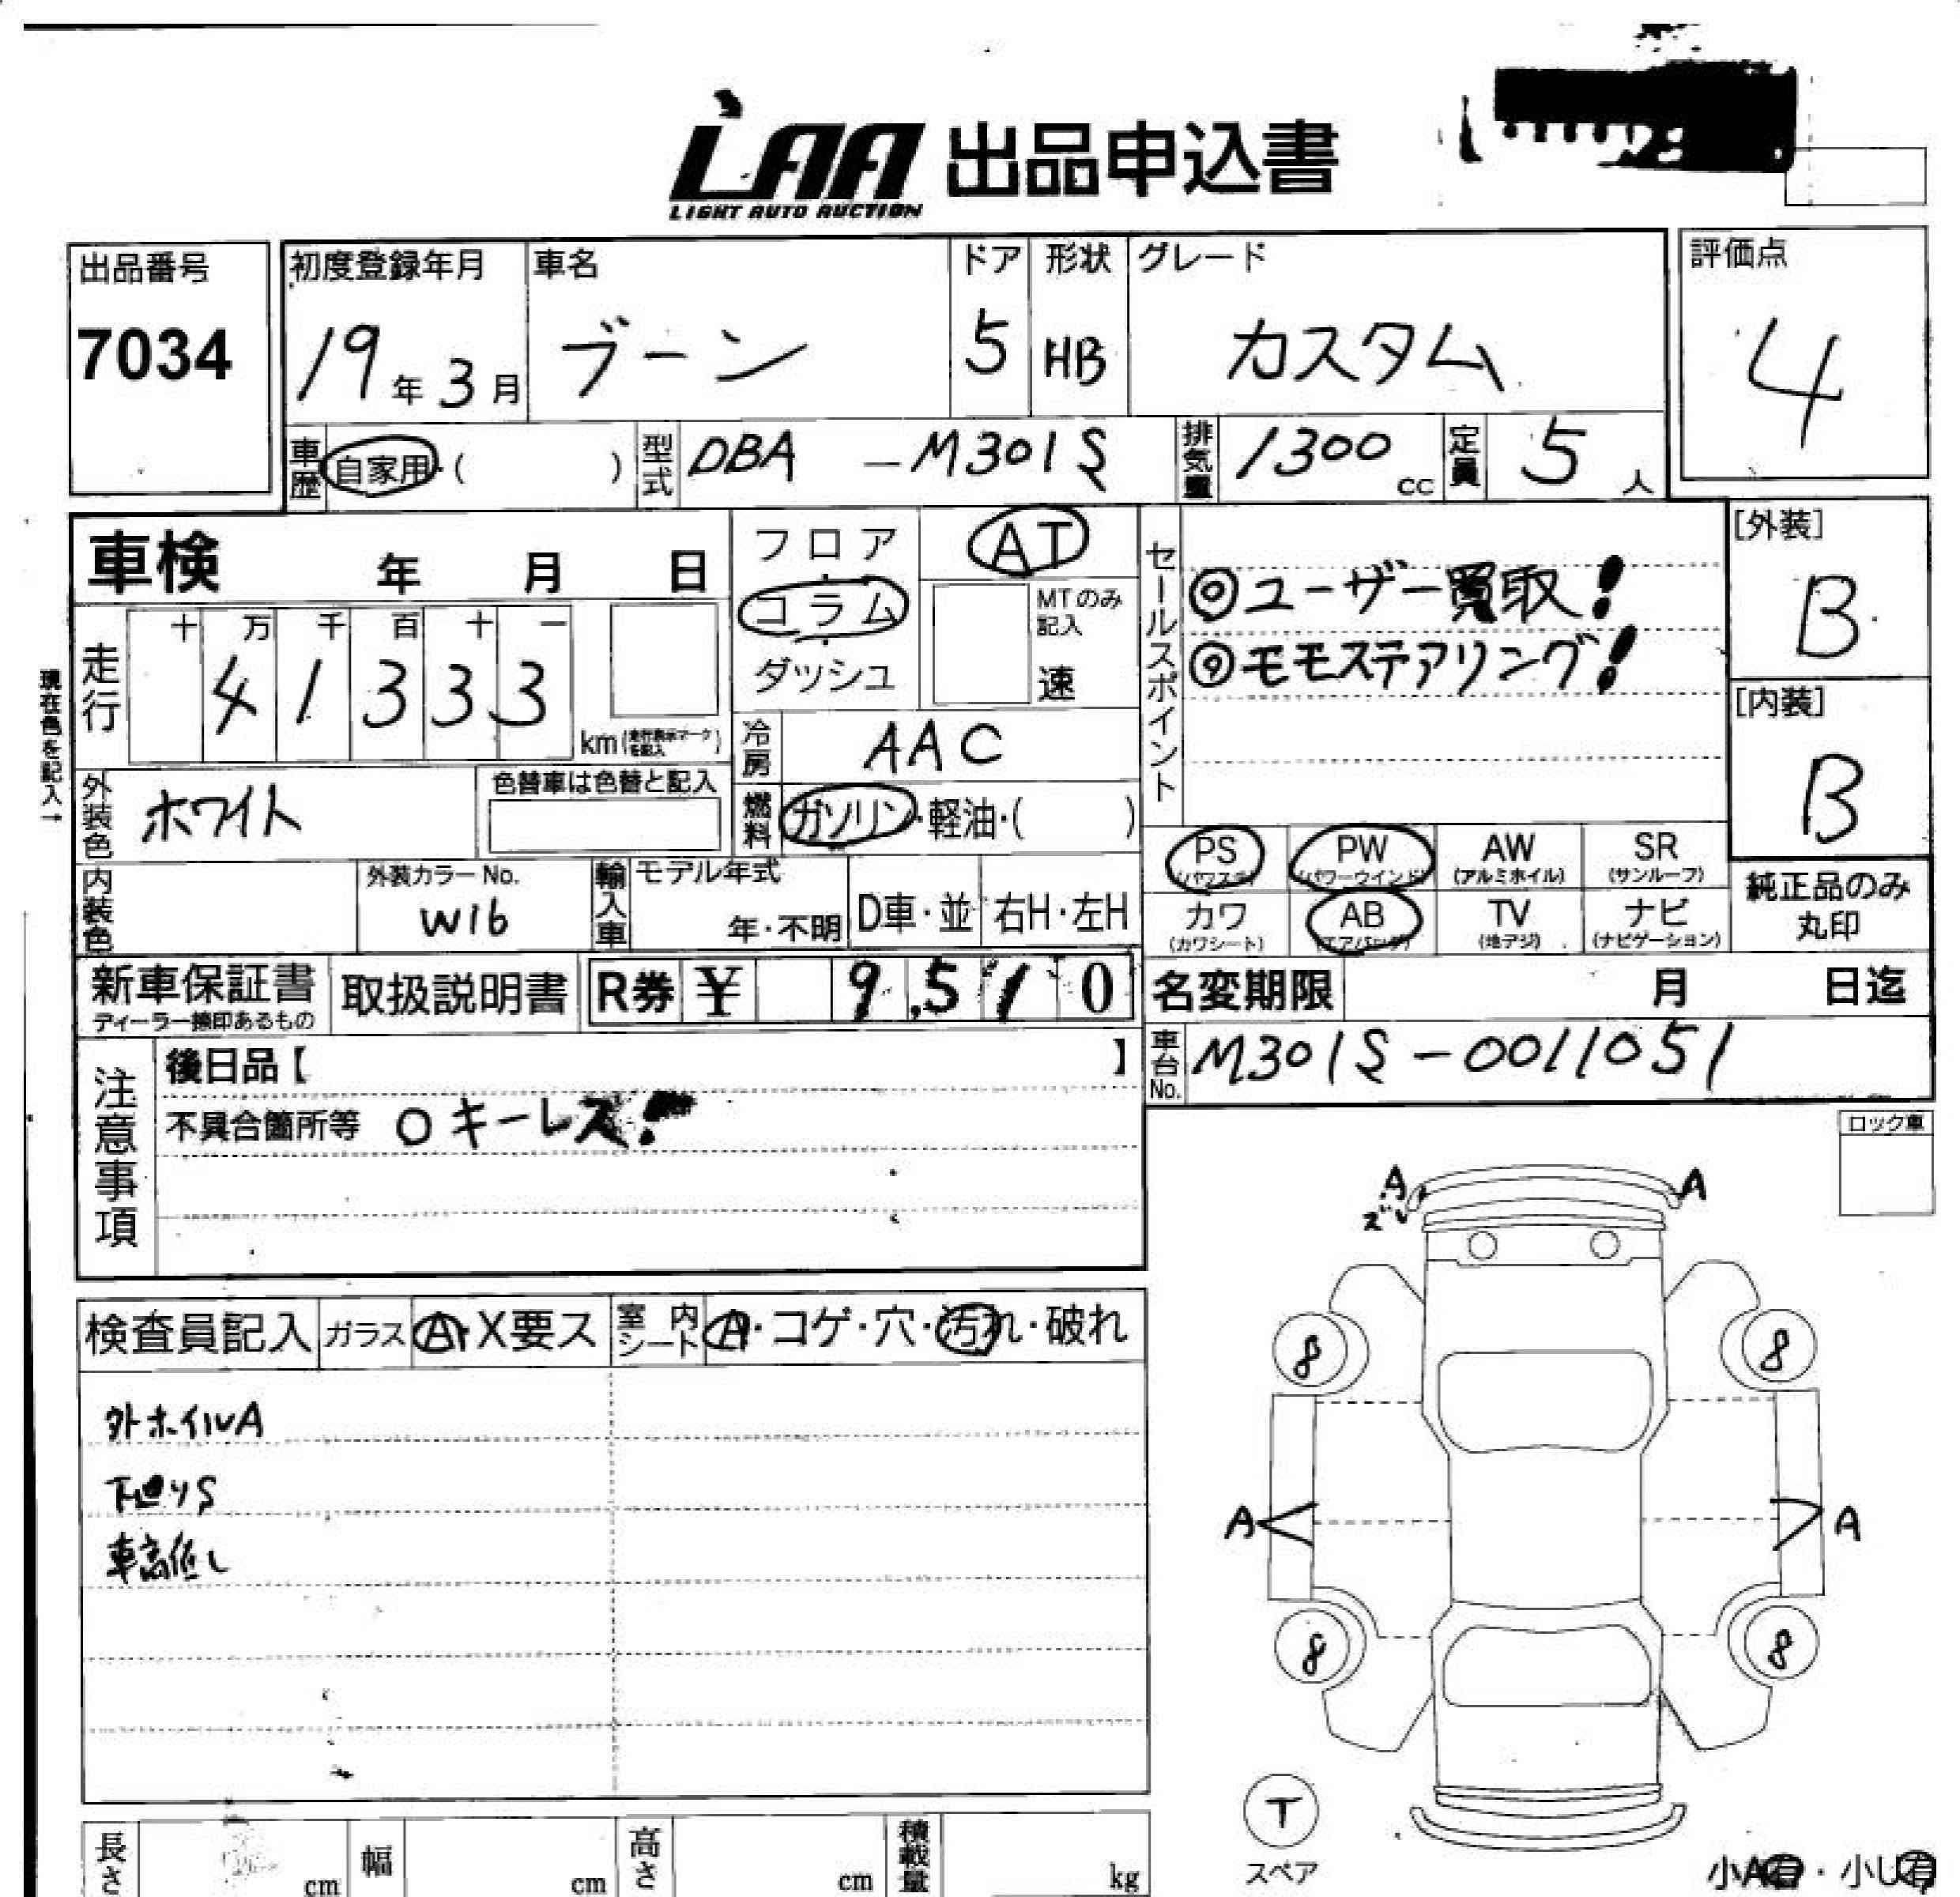 LAA 出品申込書
LIGHT AUTO AUCTION
出品番号
7034
初度登録年月
19年3月
車名
ブーン
ドア
5
形状
HB
グレード
カスタム
評価点
4
車歴
自家用・( )
型式
DBA - M301S
排気量
1300cc
定員
5人
車検 年 月 日
フロア
コラム
ダッシュ
AT
MTのみ
記入
速
セールスポイント
◎ユーザー買取!
◎モモステアリング!
[外装]
B
[内装]
B
現在色を記入→
走行
十 万 千 百 十 一
4 1 3 3 3
km(走行表示マークを記入)
冷房
AAC
外装色
ホワイト
色替車は色替と記入
燃料
ガソリン・軽油・( )
PS
(パワステ)
PW
(パワーウインド)
AW
(アルミホイル)
SR
(サンルーフ)
カワ
(カワシート)
AB
(エアバッグ)
TV
(地デジ)
ナビ
(ナビゲーション)
純正品のみ
丸印
内装色
外装カラーNo.
W16
輸入車
モデル年式
年・不明
D車・並
右H・左H
新車保証書
ディーラー捺印あるもの
取扱説明書
R券 ¥ 9,510
名変期限 月 日迄
車台No.
M301S-0011051
注意事項
後日品【 】
不具合箇所等 ○キーレス!
ロック車
A
ズレ
A
検査員記入
ガラス
A・X要ス
室内シート
A・コゲ・穴・汚れ・破れ
外ホイルA
下廻りS
車高低し
8
8
A
A
8
8
T
スペア
小A有・小U有
長さ
cm
幅
cm
高さ
cm
積載量
kg